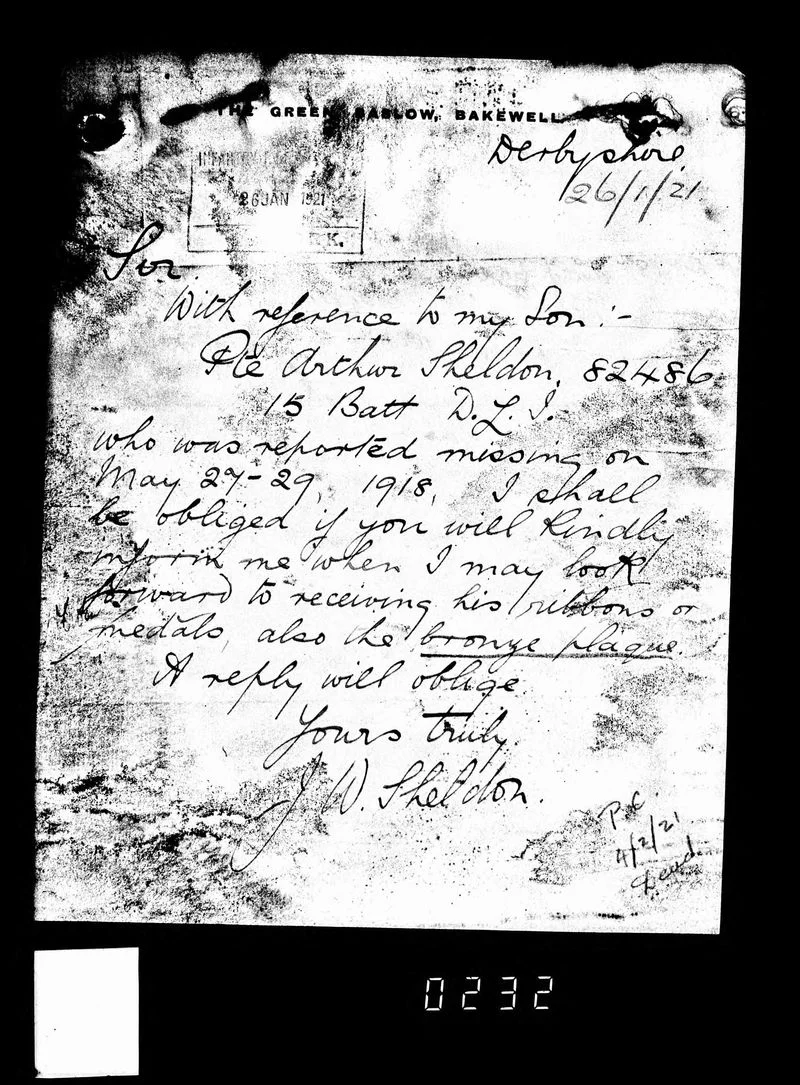 THE GREEN, BASLOW, BAKEWELL
Derbyshire
26/1/21
INFANTRY
26 JAN 1921
K.
Sir.
With reference to my Son :-
Pte Arthur Sheldon, 82486
15 Batt D.L.I.
who was reported missing on
May 27-29, 1918, I shall
be obliged if you will kindly
inform me when I may look
forward to receiving his ribbons or
medals, also the bronze plaque.
A reply will oblige
Yours truly
J W. Sheldon.
P.C.
4/2/21
Dead.
0232